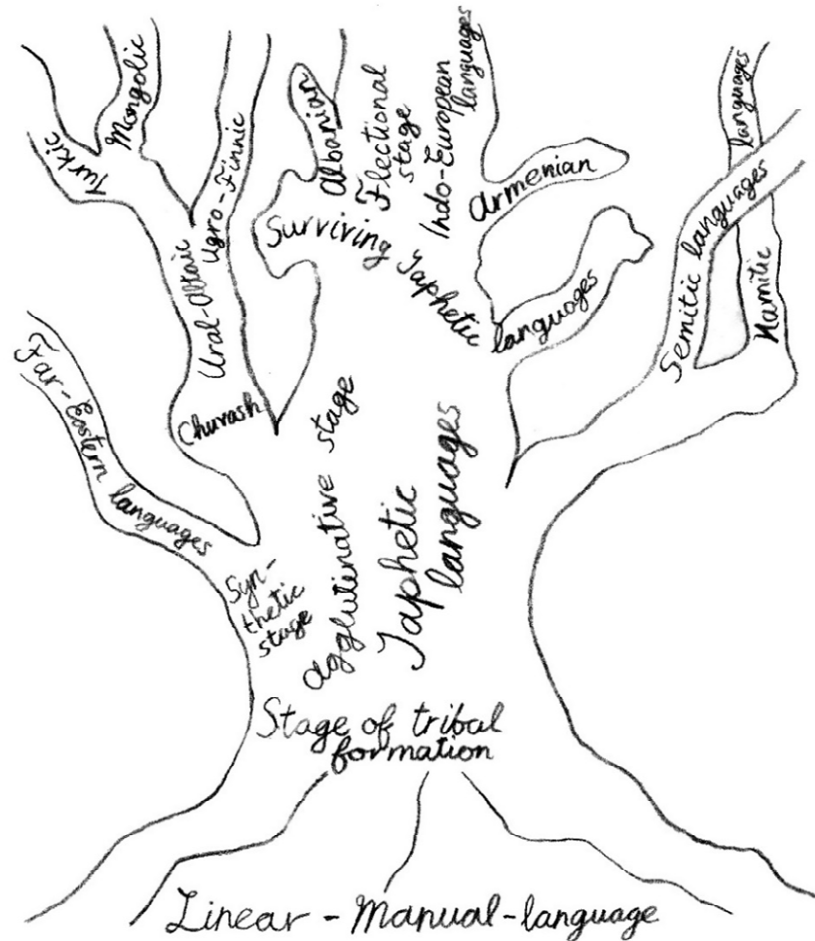 Turkic
Mongolic
Ugro-Finnic
Ural-Altaic
Churash
Albanian
Flectional
stage
Indo-European
languages
Armenian
Surviving Japhetic languages
Semitic languages
Hamitic
languages
Far-Eastern languages
Syn-
thetic
stage
agglutinative stage
Japhetic
languages
Stage of tribal
formation
Linear - Manual-language